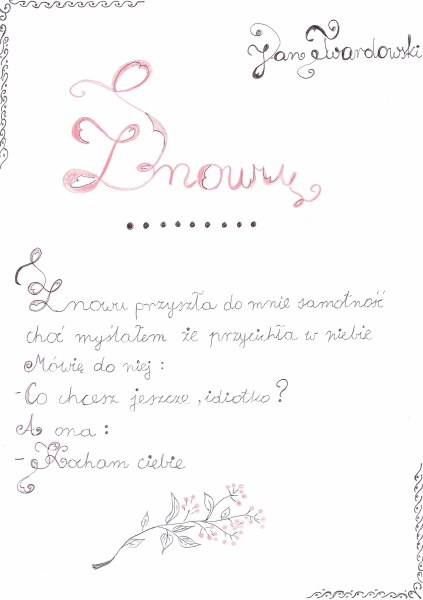 Jan Twardowski
Znowu
.........
Znowu przyszła do mnie samotność
choć myślałem że przycichła w niebie
Mówię do niej :
- Co chcesz jeszcze , idiotko ?
A ona :
- Kocham ciebie